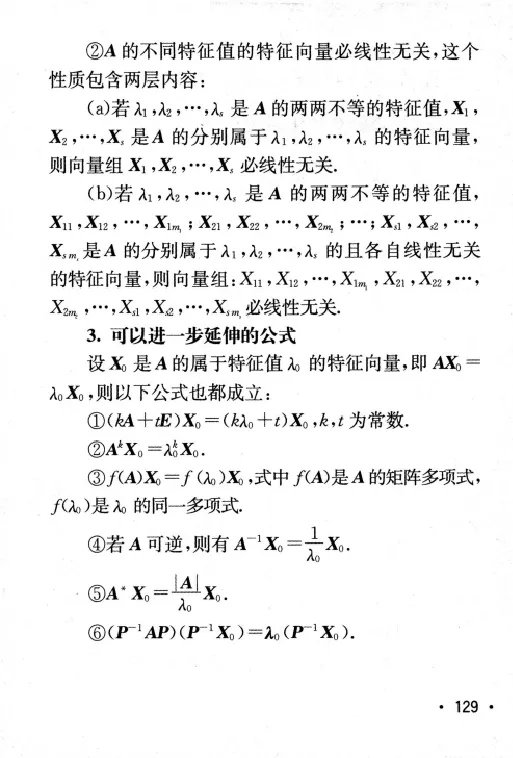 ②A 的不同特征值的特征向量必线性无关,这个
性质包含两层内容:
(a)若 λ₁,λ₂,…,λₛ 是 A 的两两不等的特征值,X₁,
X₂,…,Xₛ 是 A 的分别属于 λ₁,λ₂,…,λₛ 的特征向量,
则向量组 X₁,X₂,…,Xₛ 必线性无关.
(b)若 λ₁,λ₂,…,λₛ 是 A 的两两不等的特征值,
X₁₁,X₁₂,…,X₁ₘ₁;X₂₁,X₂₂,…,X₂ₘ₂;…;Xₛ₁,Xₛ₂,…,
Xₛₘₛ是 A 的分别属于 λ₁,λ₂,…,λₛ 的且各自线性无关
的特征向量,则向量组:X₁₁,X₁₂,…,X₁ₘ₁,X₂₁,X₂₂,…,
X₂ₘ₂,…,Xₛ₁,Xₛ₂,…,Xₛₘₛ必线性无关.
3. 可以进一步延伸的公式
设 X₀ 是 A 的属于特征值 λ₀ 的特征向量,即 AX₀=
λ₀X₀,则以下公式也都成立:
①(kA+tE)X₀=(kλ₀+t)X₀,k,t 为常数.
②AᵏX₀=λ₀ᵏX₀.
③f(A)X₀=f(λ₀)X₀,式中 f(A)是 A 的矩阵多项式,
f(λ₀)是 λ₀ 的同一多项式.
④若 A 可逆,则有 A⁻¹X₀=1/λ₀ X₀.
⑤A*X₀=|A|/λ₀ X₀.
⑥(P⁻¹AP)(P⁻¹X₀)=λ₀(P⁻¹X₀).
· 129 ·